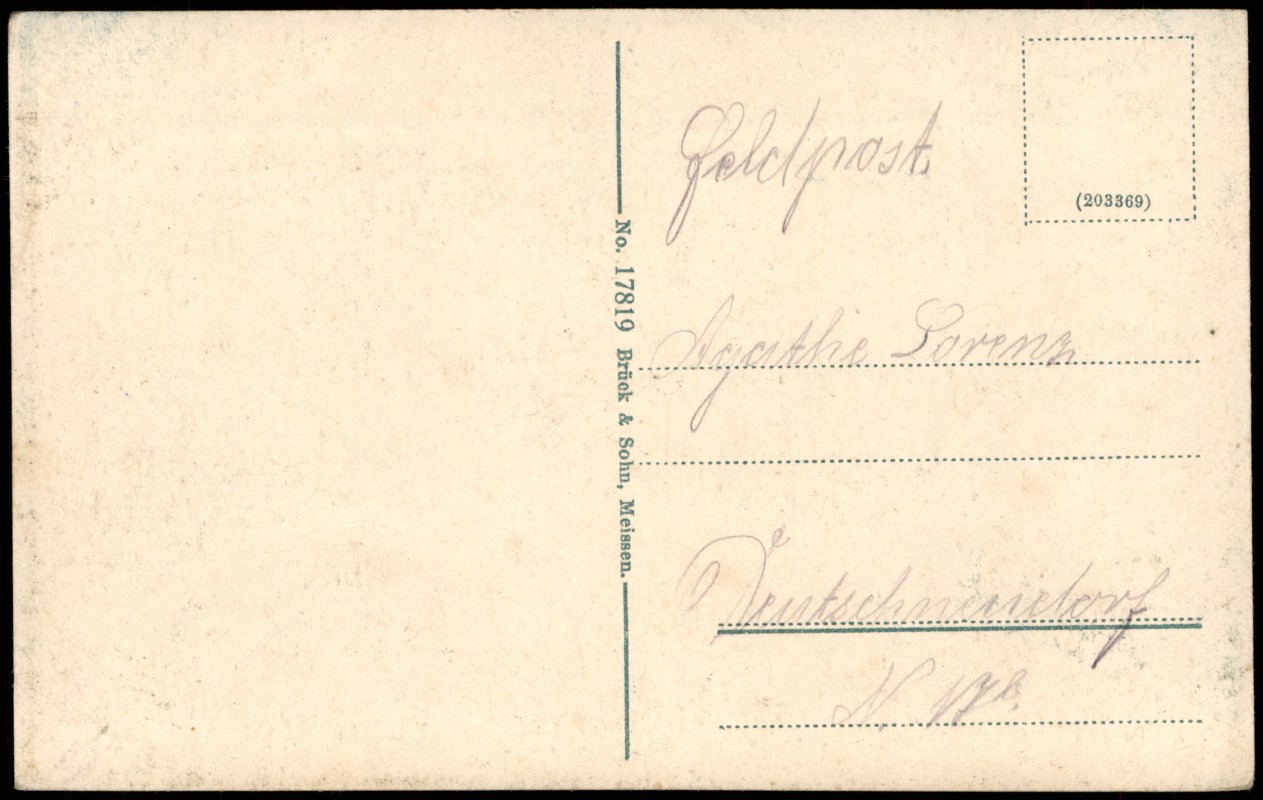 Feldpost.
(203369)
No. 17819 Brück & Sohn, Meissen.
Agathe Lorenz
Deutschneudorf
N